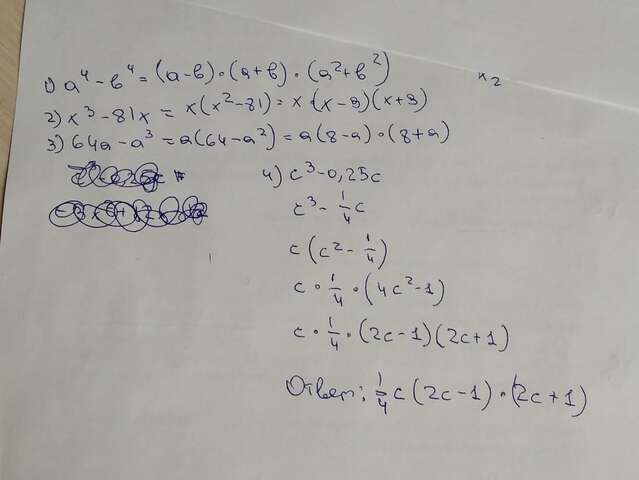 1) a⁴ - b⁴ = (a-b)·(a+b)·(a²+b²)
x₂
2) x³ - 81x = x(x²-81) = x·(x-9)(x+9)
3) 64a - a³ = a(64-a²) = a(8-a)·(8+a)
4) c³-0,25c
c³ - 1/4 c
c(c² - 1/4)
c · 1/4 · (4c²-1)
c · 1/4 · (2c-1)(2c+1)
Ответ: 1/4 c(2c-1)·(2c+1)